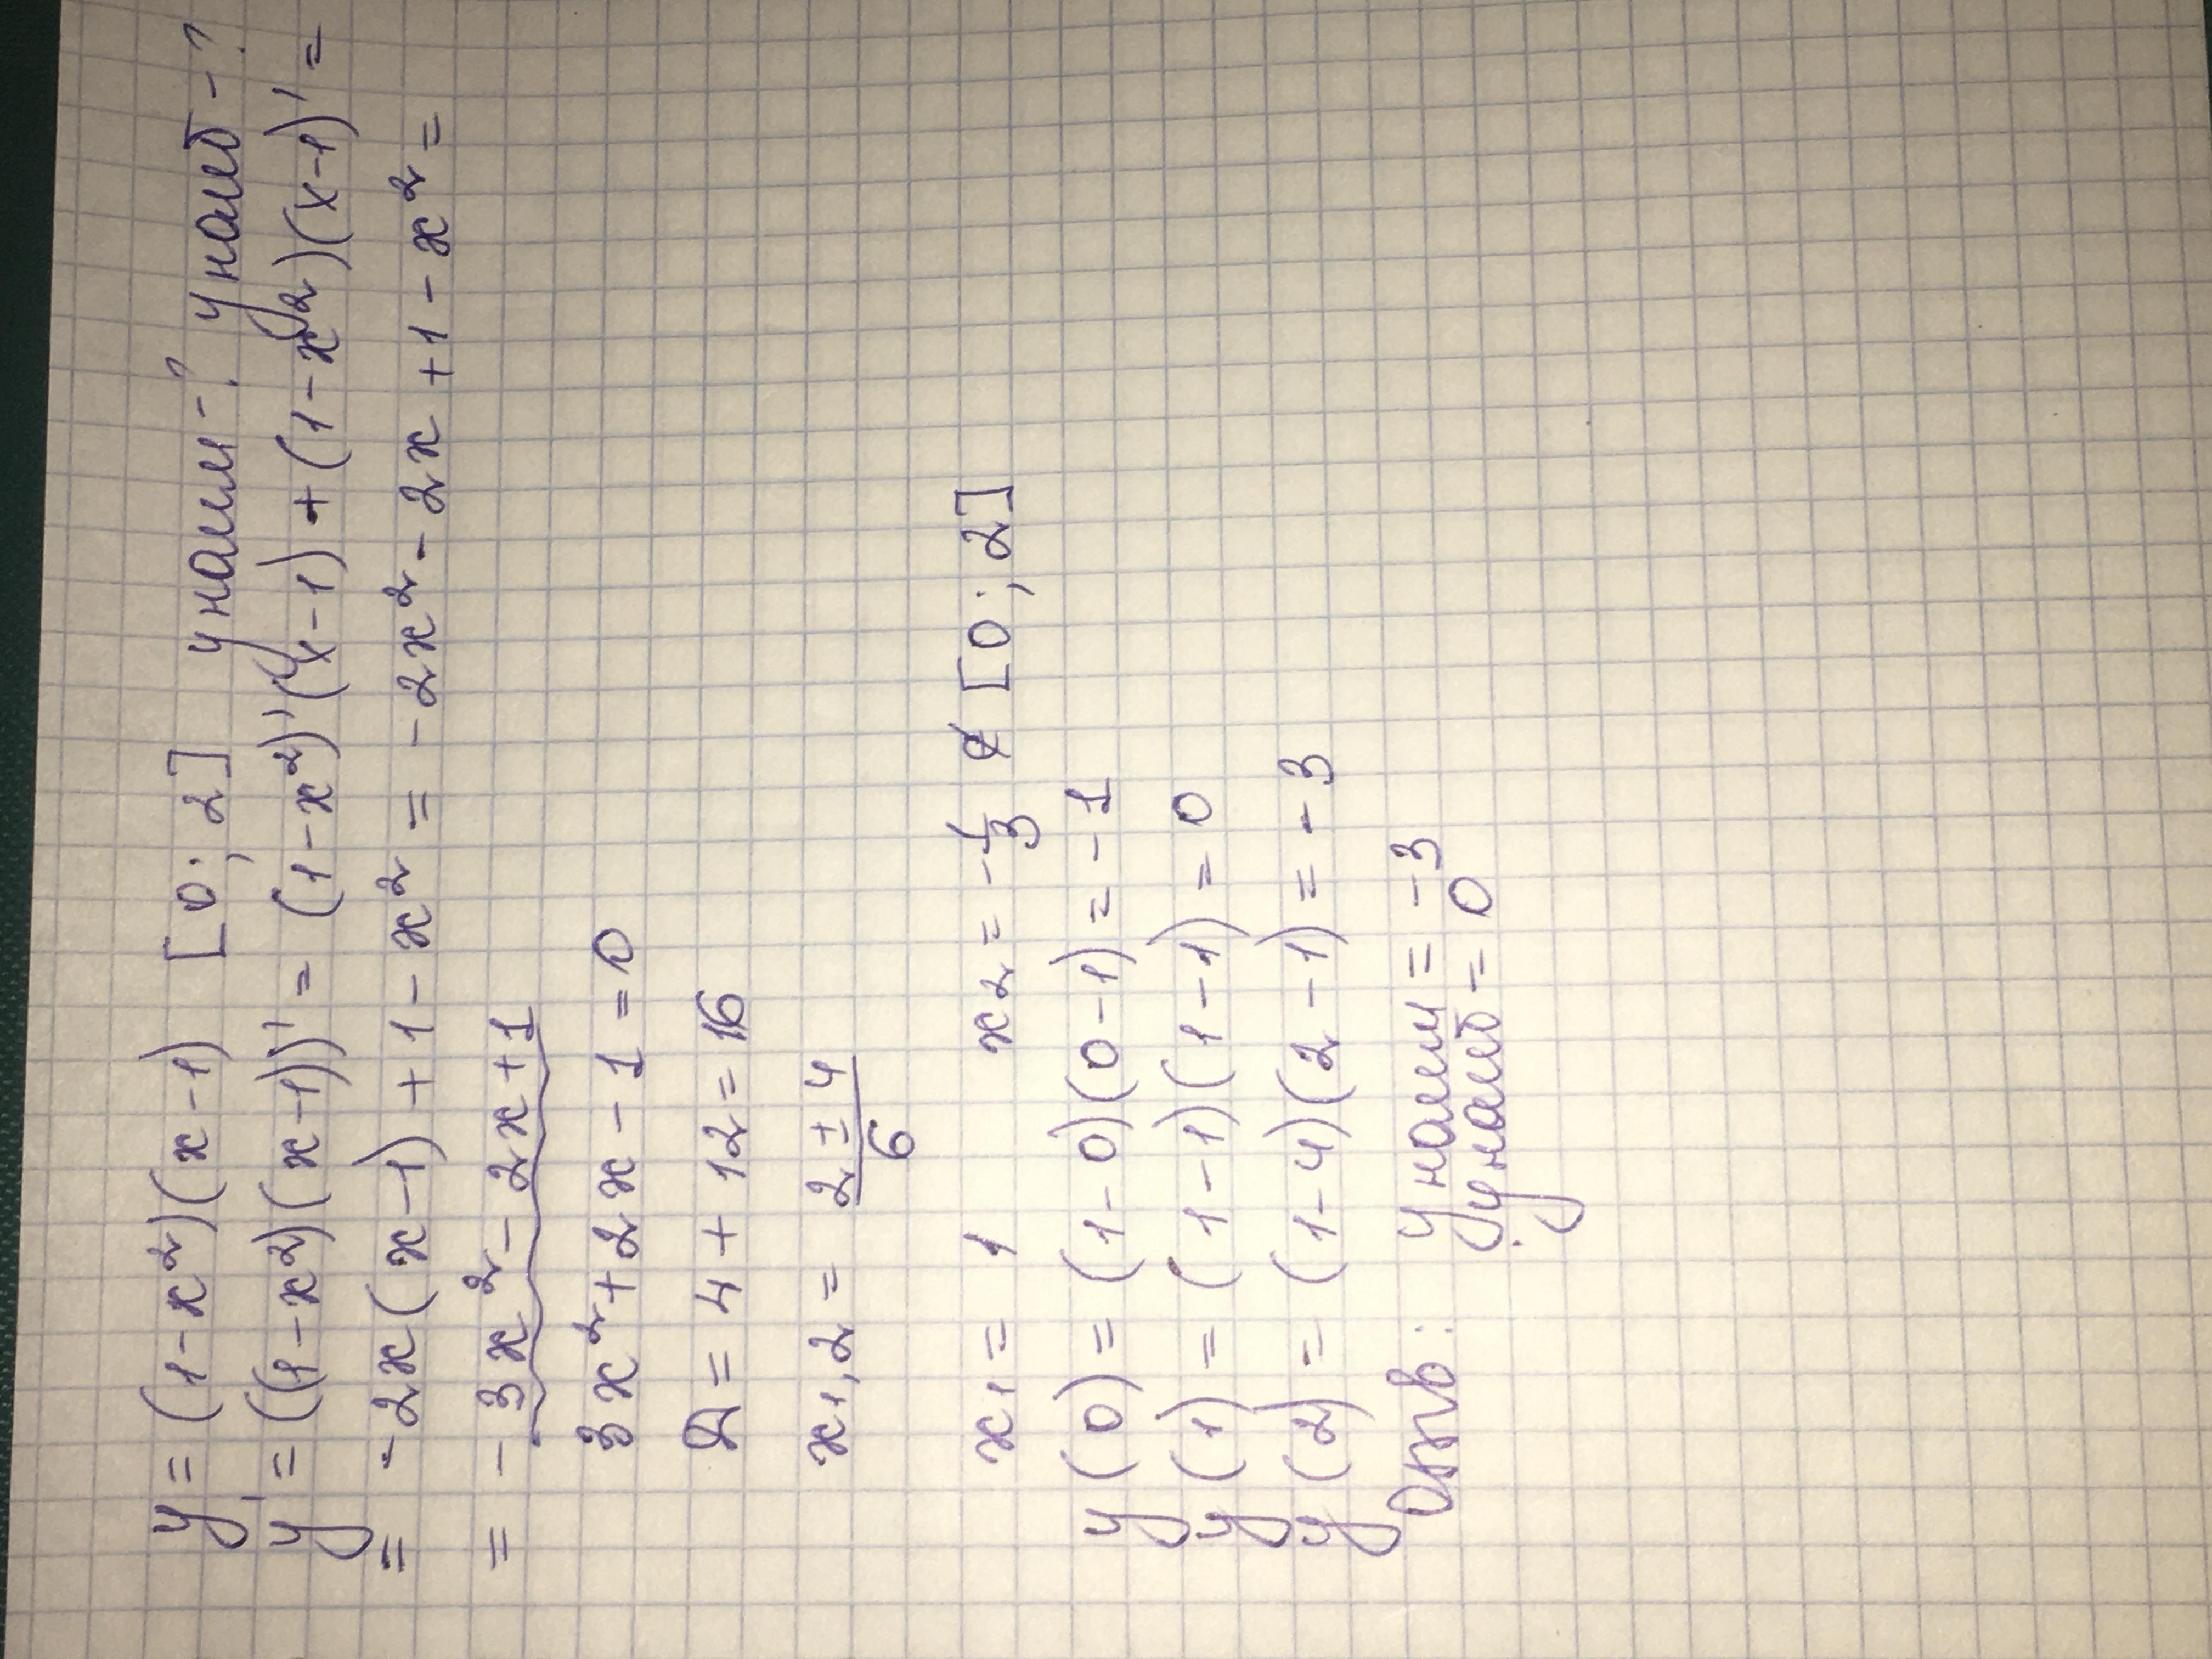 y = (1-x²)(x-1) [0; 2] yнаим-? yнаиб-?
y' = ((1-x²)(x-1))' = (1-x²)'(x-1) + (1-x²)(x-1)' =
= -2x(x-1)+1-x² = -2x²-2x+1-x² =
= -3x²-2x+1
3x²+2x-1=0
D=4+12=16
x1,2 = (2±4)/6
x1 = 1 x2 = -1/3 ∉ [0;2]
y(0) = (1-0)(0-1) = -1
y(1) = (1-1)(1-1) = 0
y(2) = (1-4)(2-1) = -3
Отв: yнаим = -3
yнаиб = 0